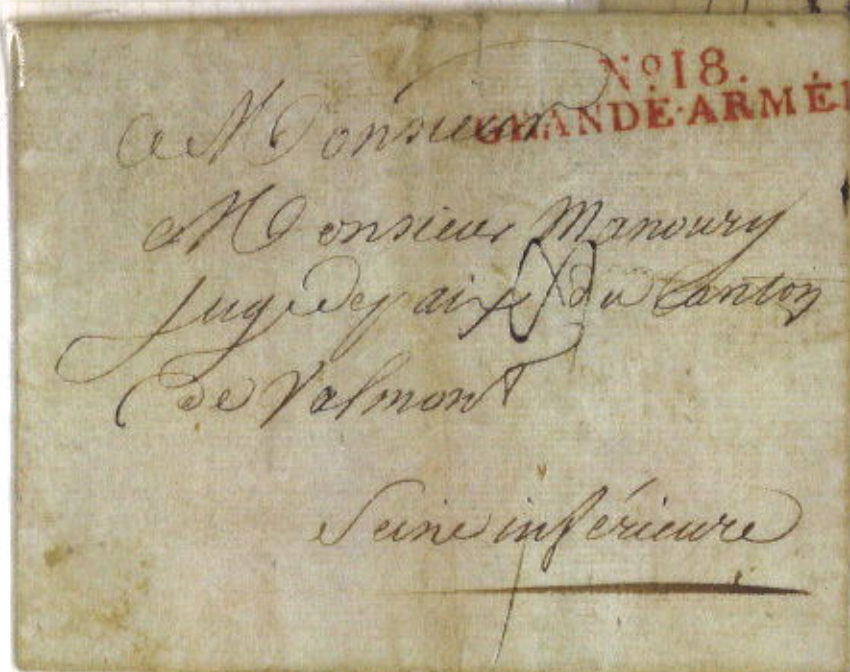 No. 18.
GRANDE·ARMÉE
A Monsieur
Monsieur Manoury
Juge de paix du Canton
de Valmont
Seine inférieure